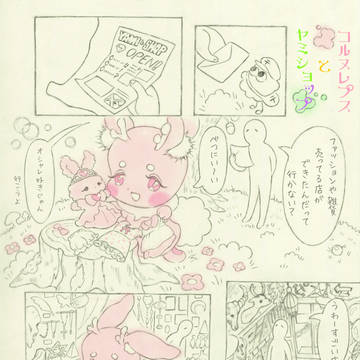 コルヌレプス
と
ヤミショップ
YAMI SHOP
OPEN!!
ファッションや雑貨
売ってる店が
できたんだって
行かない?
べつにい〜い
オシャレ好きじゃん
行こうよ
うわーすごい